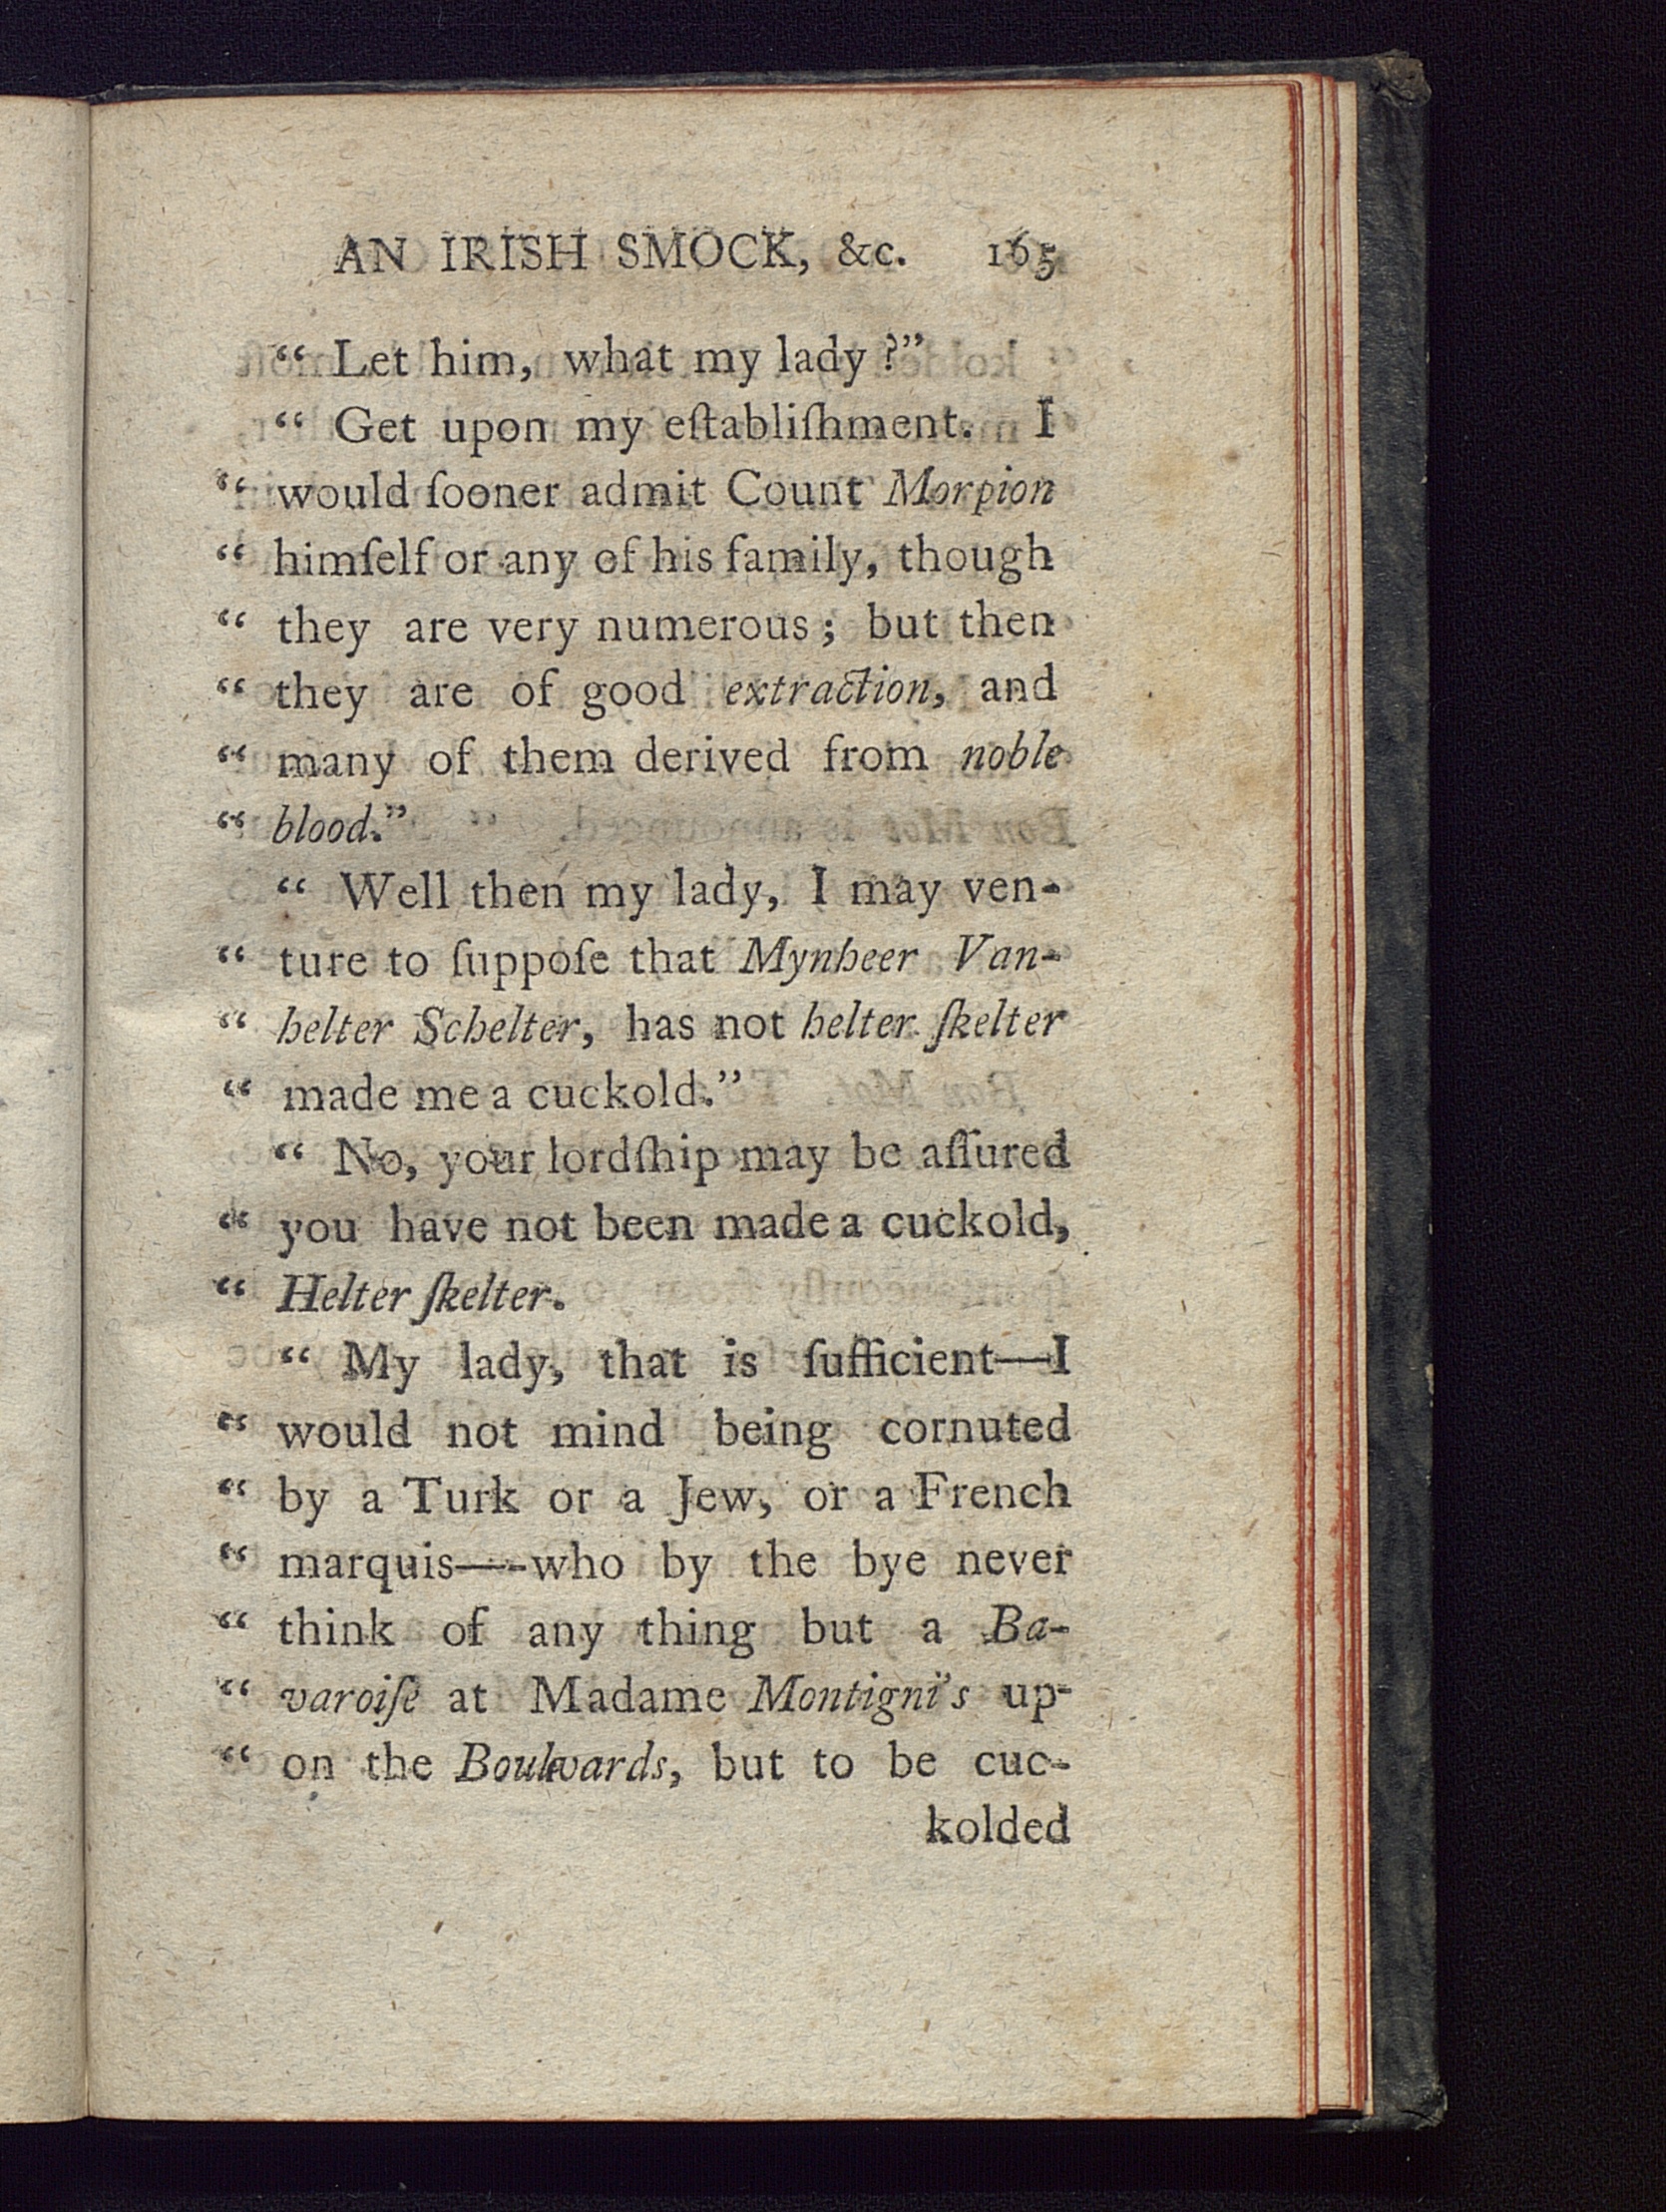 AN IRISH SMOCK, &c. 165
“ Let him, what my lady ?”
“ Get upon my eſtabliſhment. I
“ would ſooner admit Count Morpion
“ himſelf or any of his family, though
“ they are very numerous; but then
“ they are of good extraction, and
“ many of them derived from noble
“ blood.”
“ Well then my lady, I may ven-
“ ture to ſuppoſe that Mynheer Van-
“ helter Schelter, has not helter ſkelter
“ made me a cuckold.”
“ No, your lordſhip may be aſſured
“ you have not been made a cuckold,
“ Helter ſkelter.
“ My lady, that is ſufficient—I
“ would not mind being cornuted
“ by a Turk or a Jew, or a French
“ marquis—-who by the bye never
“ think of any thing but a Ba-
“ varoiſe at Madame Montigni's up-
“ on the Boulvards, but to be cuc-
kolded